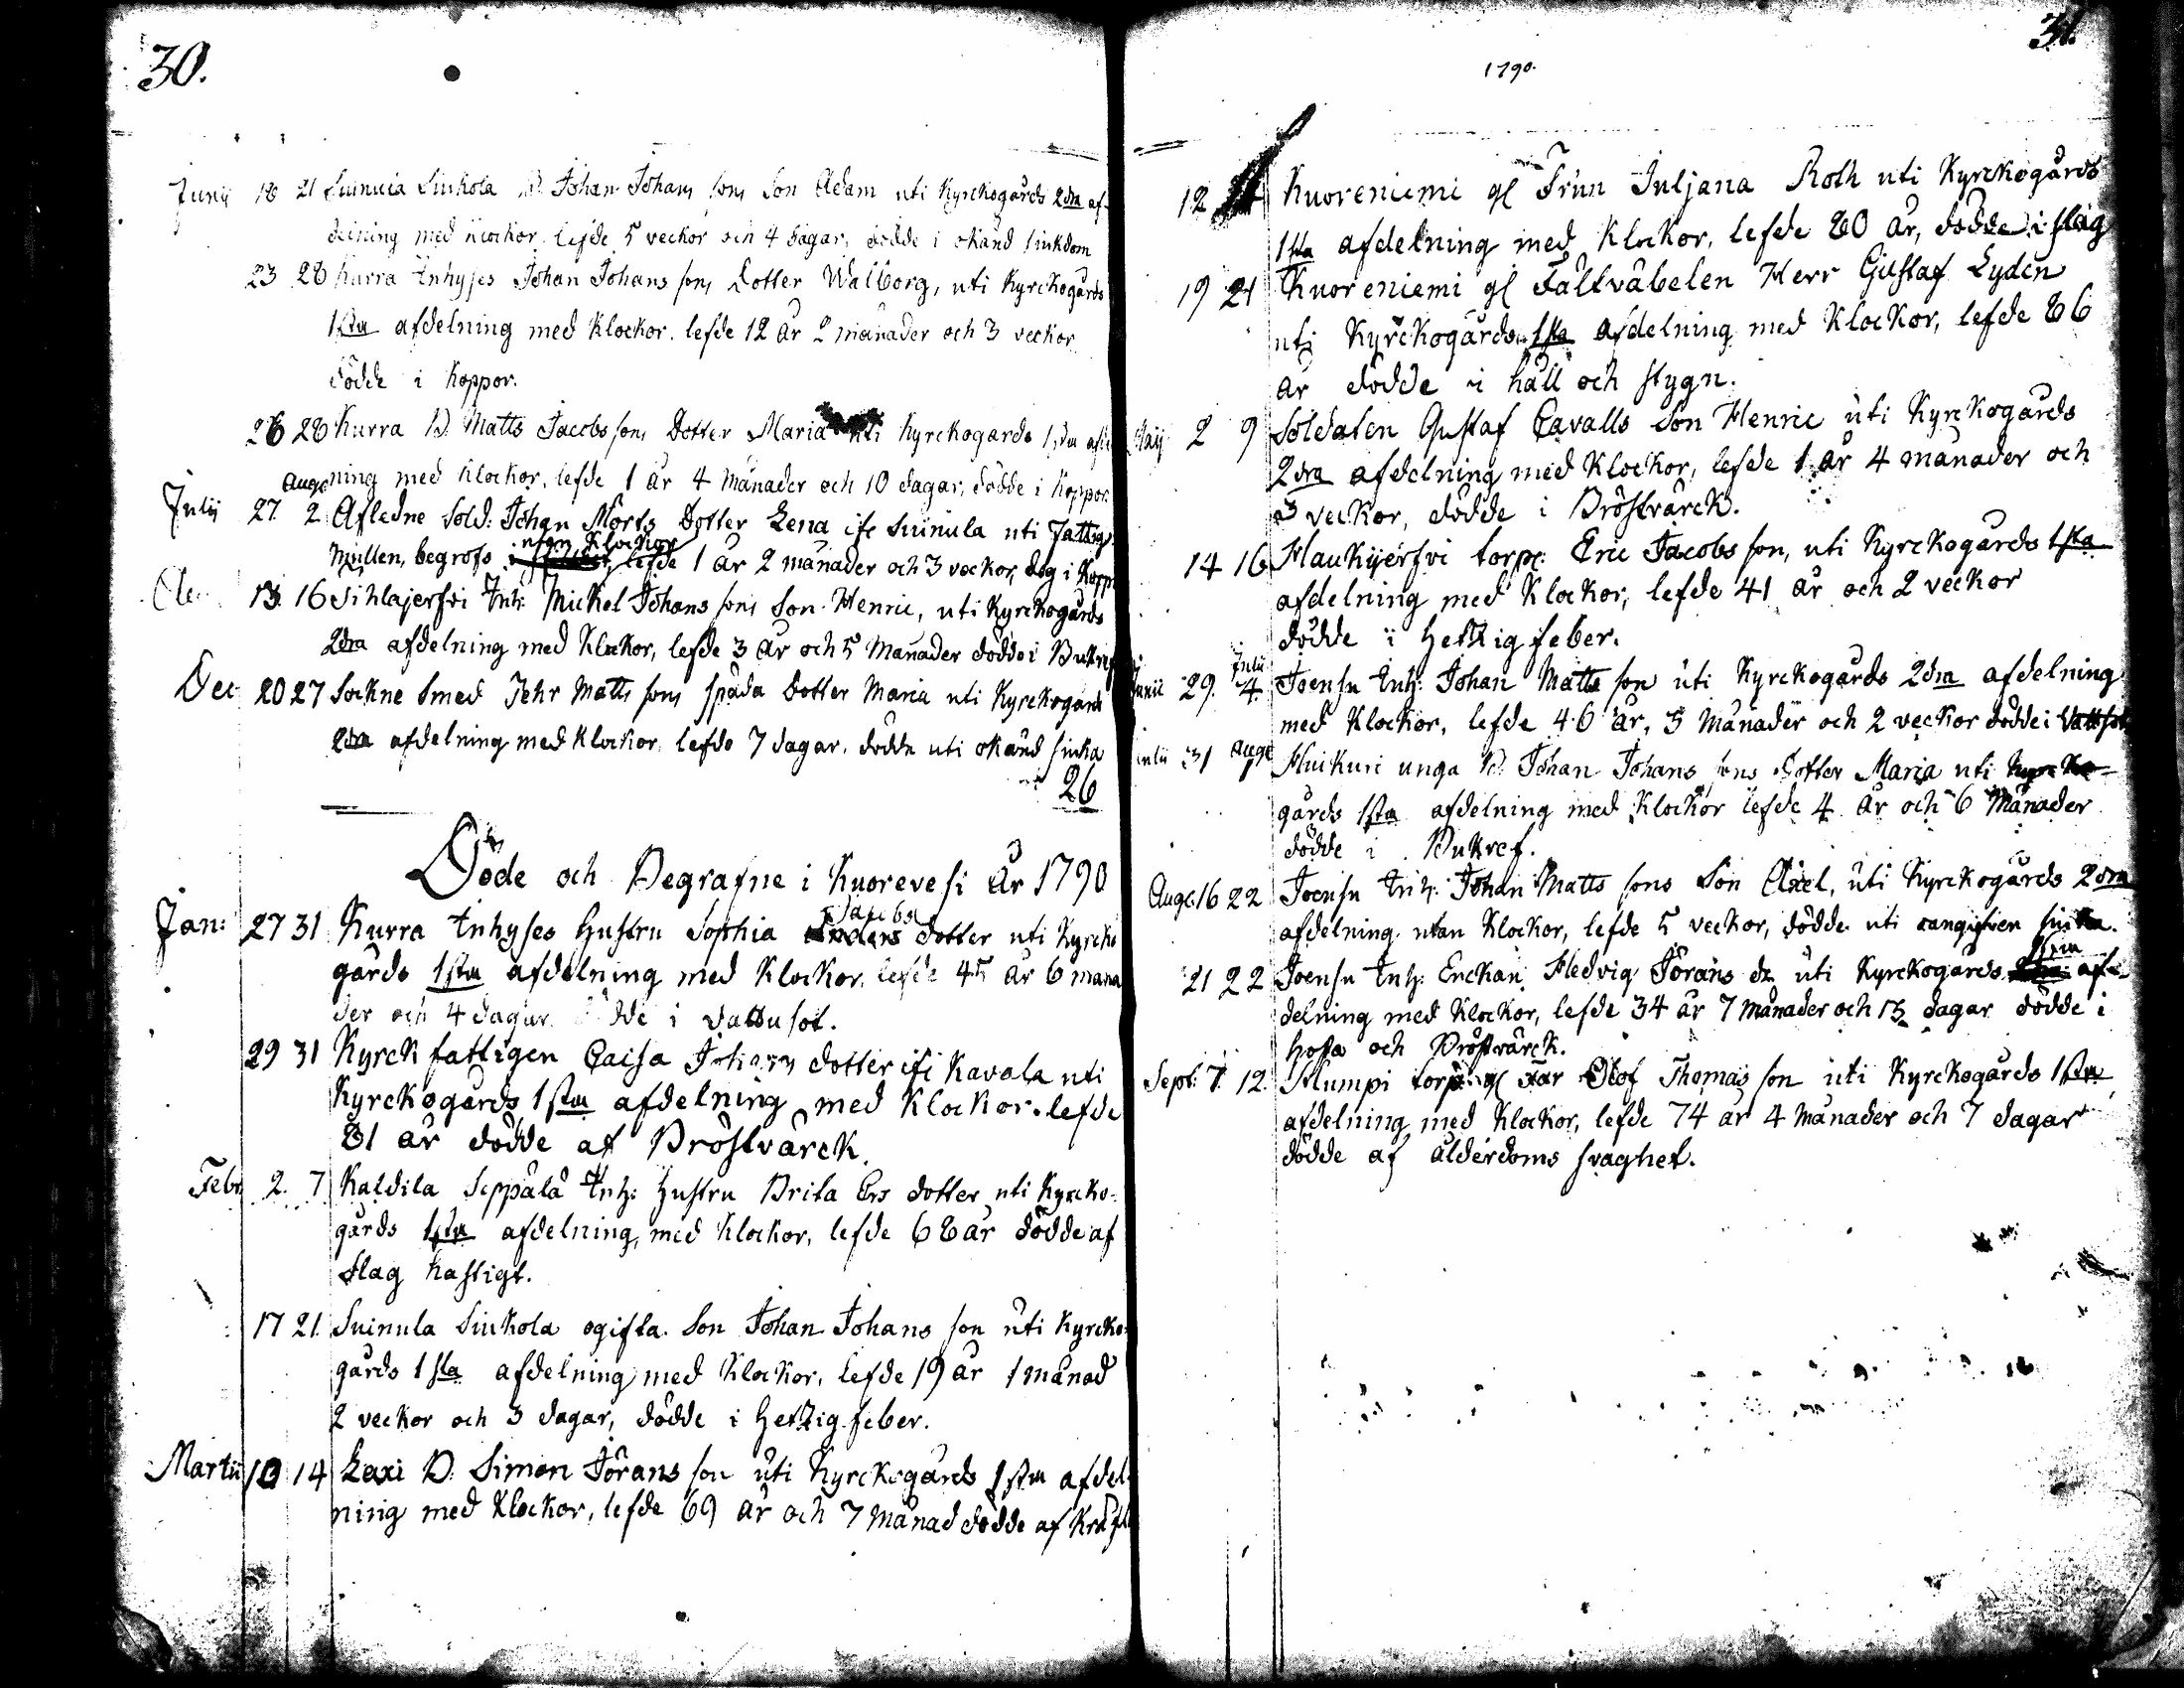 30.
Junij 18 21 Suinula Siukola B. Johan Johans sons Son Adam uti Kyrckogårds 2dra af-
delning med klockor, lefde 5 veckor och 4 dagar, dödde i okänd siukdom
23 28 Kurra Inhyses Johan Johans sons Dotter Walborg, uti Kyrckogårds
1sta afdelning med klockor. lefde 12 år 2 månader och 3 veckor
dödde i koppor.
26 28 Kurra B. Matts Jacobs sons Dotter Maria uti Kyrckogårds 1sta afdel
ning med klockor, lefde 1 år 4 månader och 10 dagar, dödde i koppor
Julij 27 Aug: 2 Afledne Sold: Johan Mörts Dotter Lena ifr Suinula uti Fattig
mullen, begrofs utan klockor lefde 1 år 2 månader och 3 veckor, dog i kopp
13. 16 Sihlajerfvi Inh: Mickel Johans sons Son Henric, uti Kyrckogårds
2dra afdelning med klockor, lefde 3 år och 5 månader dödde i Bukref
Dec 20 27 Sockne Smed Jehr Matts sons späda Dotter Maria uti Kyrckogårds
2dra afdelning med klockor, lefde 7 dagar, dödde uti okänd siuka
26
Döde och Begrafne i Kuorevesi År 1790
Jan: 27 31 Kurra Inhyses Hustru Sophia Jacobs dotter uti Kyrcko
gårds 1sta afdelning med klockor, lefde 45 år 6 måna
der och 4 dagar dödde i vattusot.
29 31 Kyrck fattigen Caisa Johans dotter ifr Kavala uti
Kyrckogårds 1sta afdelning med klockor. lefde
81 år dödde af Bröstvärck.
Febr 2. 7 Kaldila Seppälä Inh: Hustru Brita Ers dotter uti Kyrcko-
gårds 1sta afdelning, med klockor, lefde 68 år dödde af
slag hastigt.
17 21. Suinula Siukola ogifta Son Johan Johans son uti Kyrcko-
gårds 1sta afdelning med klockor, lefde 19 år 1 månad
2 veckor och 3 dagar, dödde i Hetzig feber.
Martii 10 14 Laxi B. Simon Jörans son uti Kyrckogårds 1sta afdel-
ning med klockor, lefde 69 år och 7 månad dödde af
31.
1790.
12 Kuoreniemi gl Frun Juljana Roth uti Kyrckogårds
1sta afdelning med klockor, lefde 80 år, dödde i slag
19 21 Kuoreniemi gl Fältväbelen Herr Gustaf Lydén
uti Kyrckogårds 1sta afdelning med klockor, lefde 86
år dödde i håll och stygn.
Maij 2 9 Soldaten Gustaf Cavalls Son Henric uti Kyrckogårds
2dra afdelning med klockor, lefde 1 år 4 månader och
3 veckor, dödde i Bröstvärck.
14 16 Haukijerfvi torp: Eric Jacobs son, uti Kyrckogårds 1sta
afdelning med klockor, lefde 41 år och 2 veckor
dödde i Hettzig feber.
Junii 29. Julii 4. Joensu Inh: Johan Matts son uti Kyrckogårds 2dra afdelning
med klockor, lefde 46 år, 3 månader och 2 veckor dödde i Vattsot
Julii 31 Aug: 1 Huikuri unga B. Johan Johans sons dotter Maria uti Kyrcko-
gårds 1sta afdelning med klockor lefde 4 år och 6 månader
dödde i Bukref.
Aug: 16 22 Joensu Inh: Johan Matts sons Son Axel, uti Kyrckogårds 2dra
afdelning utan klockor, lefde 5 veckor, dödde uti oangifven siuka.
21 22 Joensu Inh: Enckan Hedvig Jörans dr uti Kyrckogårds af-
delning med klockor, lefde 34 år 7 månader och 13 dagar dödde i
hosta och Bröstvärck.
Sept: 7. 12. Klumpi torp: gl Far Olof Thomas son uti Kyrckogårds 1sta
afdelning med klockor, lefde 74 år 4 månader och 7 dagar
dödde af ålderdoms svaghet.